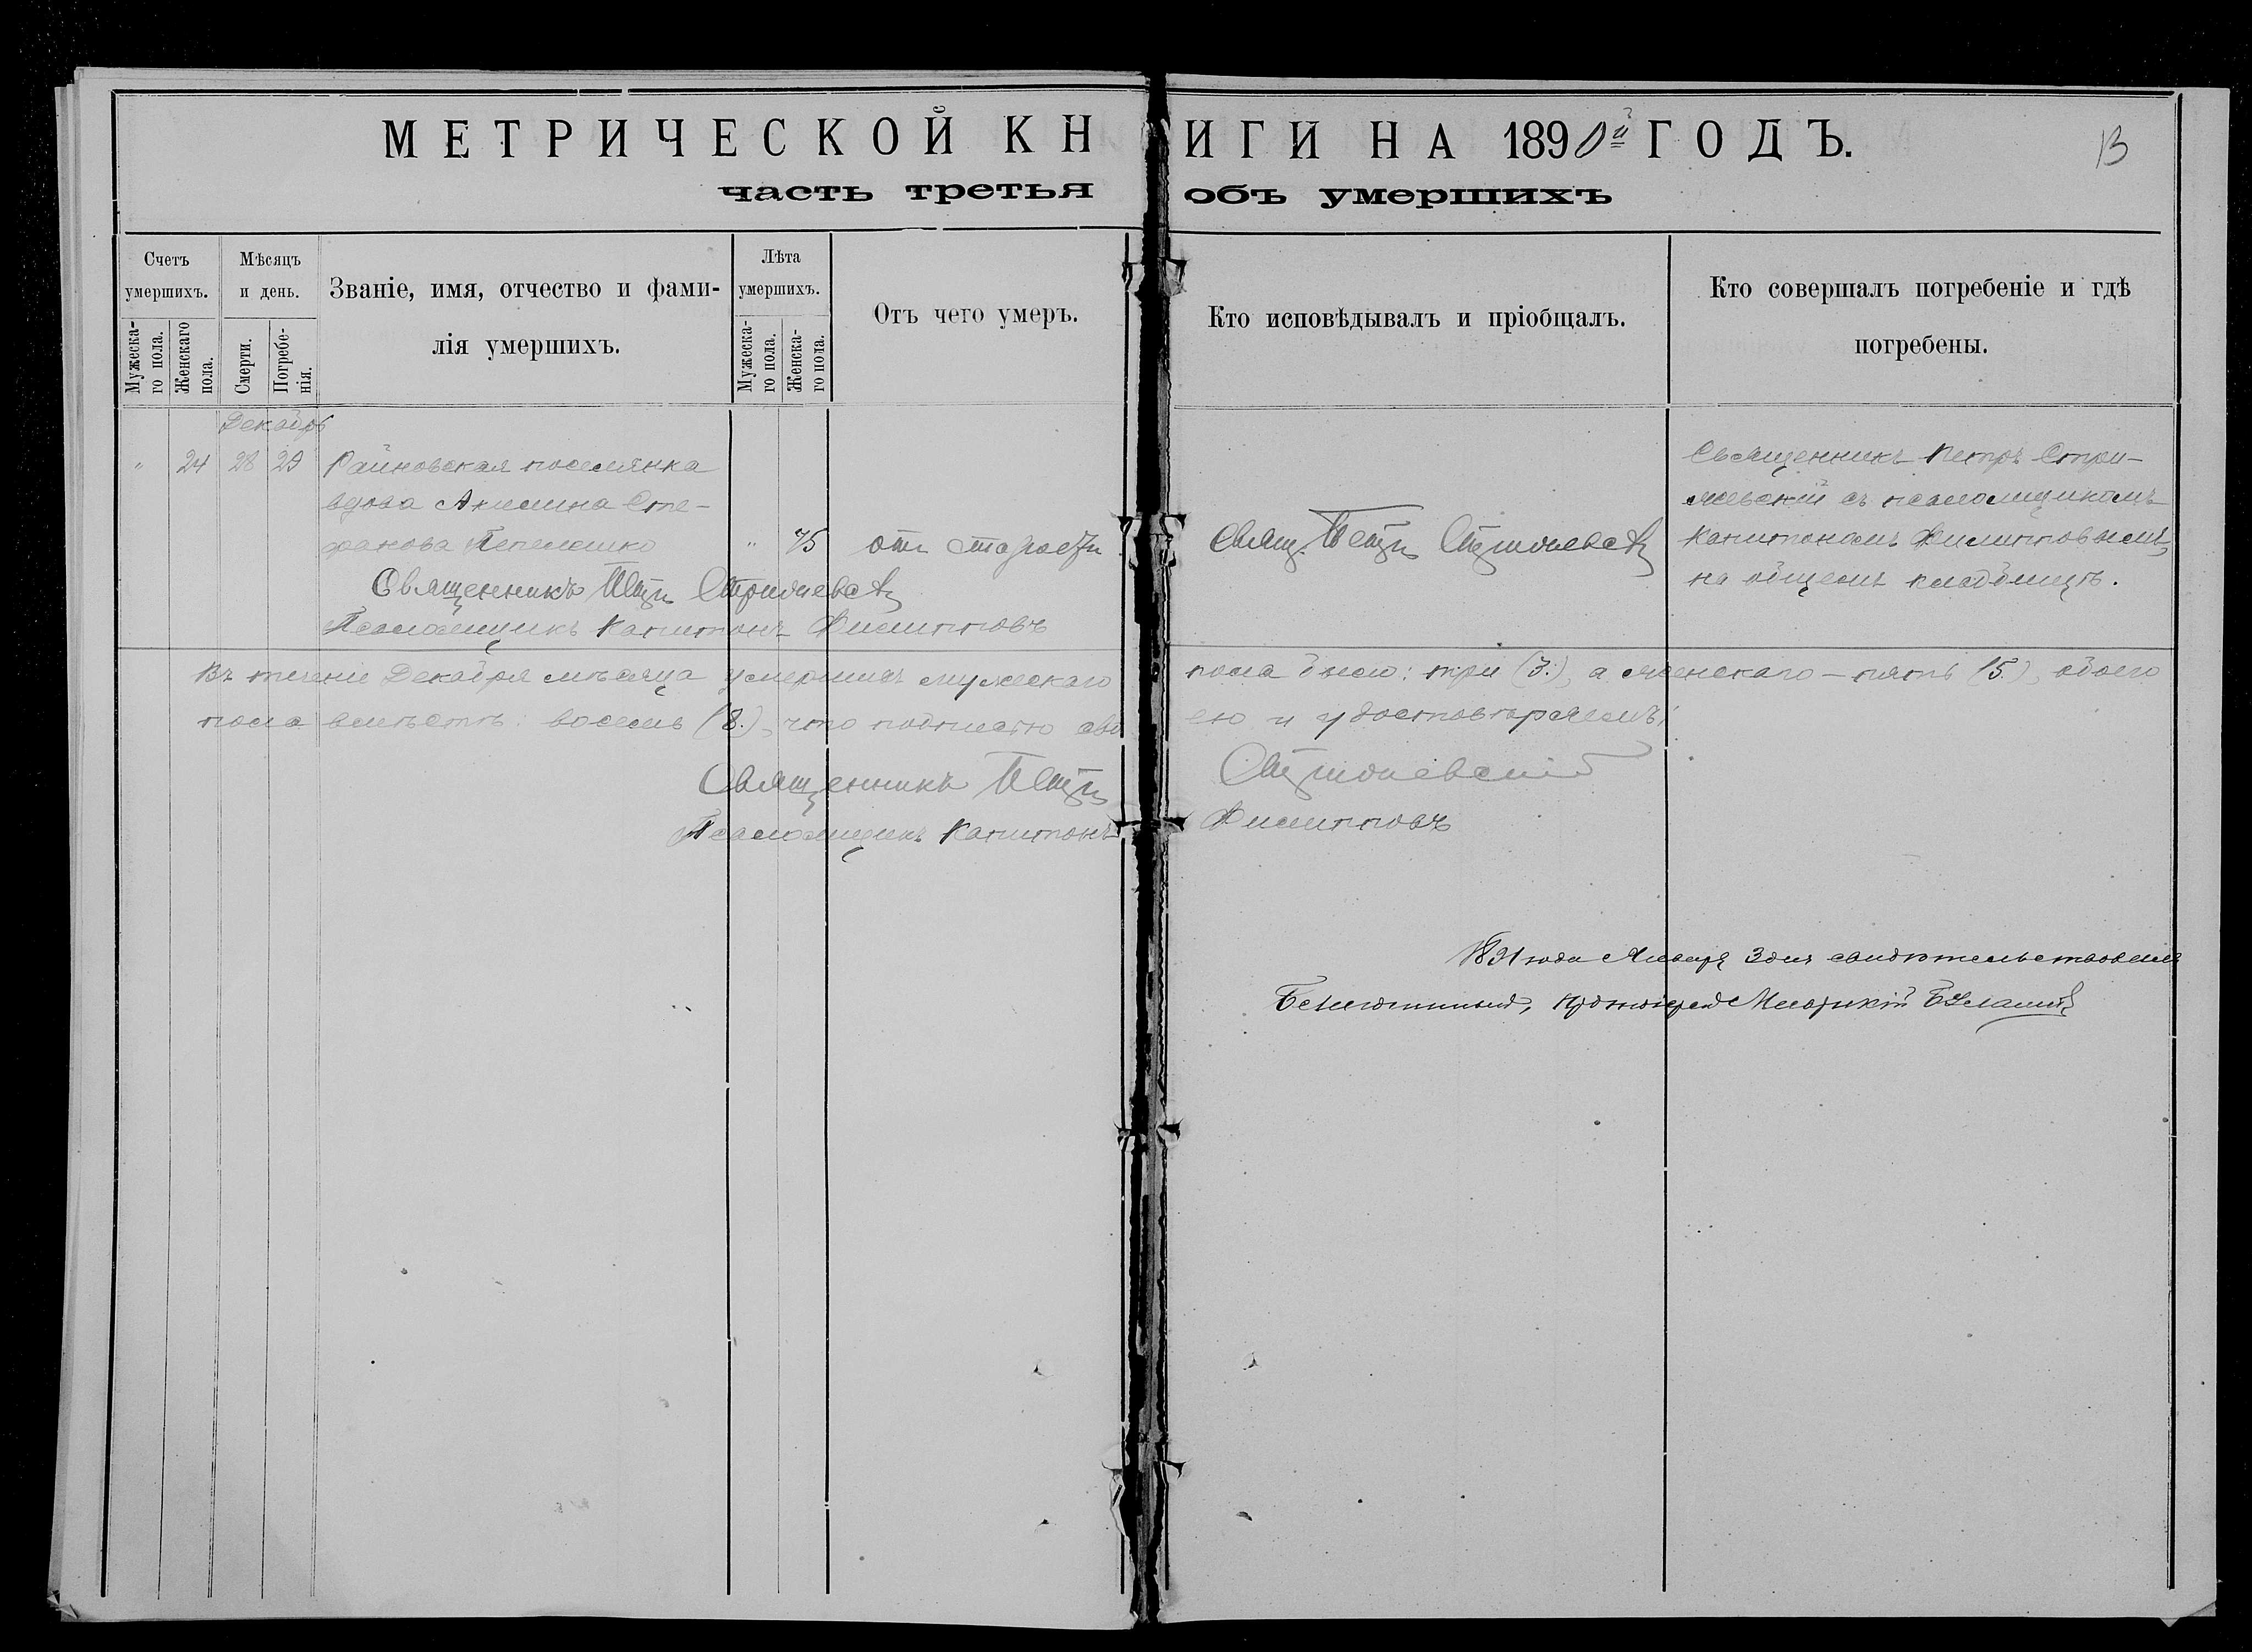 МЕТРИЧЕСКОЙ КНИГИ НА 1890й ГОДЪ.
13
часть третья объ умершихъ
Счетъ умершихъ.
Мужескаго пола.
Женскаго пола.
Мѣсяцъ и день.
Смерти.
Погребенія.
Званіе, имя, отчество и фами-
лія умершихъ.
Лѣта умершихъ.
Мужескаго пола.
Женскаго пола.
Отъ чего умеръ.
Кто исповѣдывалъ и пріобщалъ.
Кто совершалъ погребеніе и гдѣ
погребены.
Декабрь
" 24 28 29 Райновская поселянка
вдова Акилина Сте-
фанова
" 75 отъ старости
Свящ. Петръ Стрижевскій
Священникъ Петръ Стри-
жевскій съ псаломщикомъ
Капитономъ Филипповымъ,
на общемъ кладбищѣ.
Священникъ Петръ Стрижевскій
Псаломщикъ Капитонъ Филипповъ
Въ теченіе Декабря мѣсяца умершихъ мужескаго пола было: три (3.), а женскаго – пять (5.), обоего
пола вмѣстѣ: восемь (8.), что подписью своею и удостовѣряемъ:
Священникъ Петръ Стрижевскій
Псаломщикъ Капитонъ Филипповъ
1891 года Января 3 дня свидѣтельствовалъ
Благочинный, Протоіерей